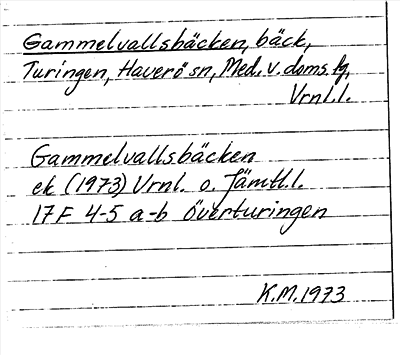 Gammelvallsbäcken, bäck,
Turingen, Haverö sn, Med. v. doms. tg,
Vrnl.l.
Gammelvallsbäcken
ek (1973) Vrnl. o. Jämtl.l.
17F 4-5 a-b Överturingen
K.M. 1973